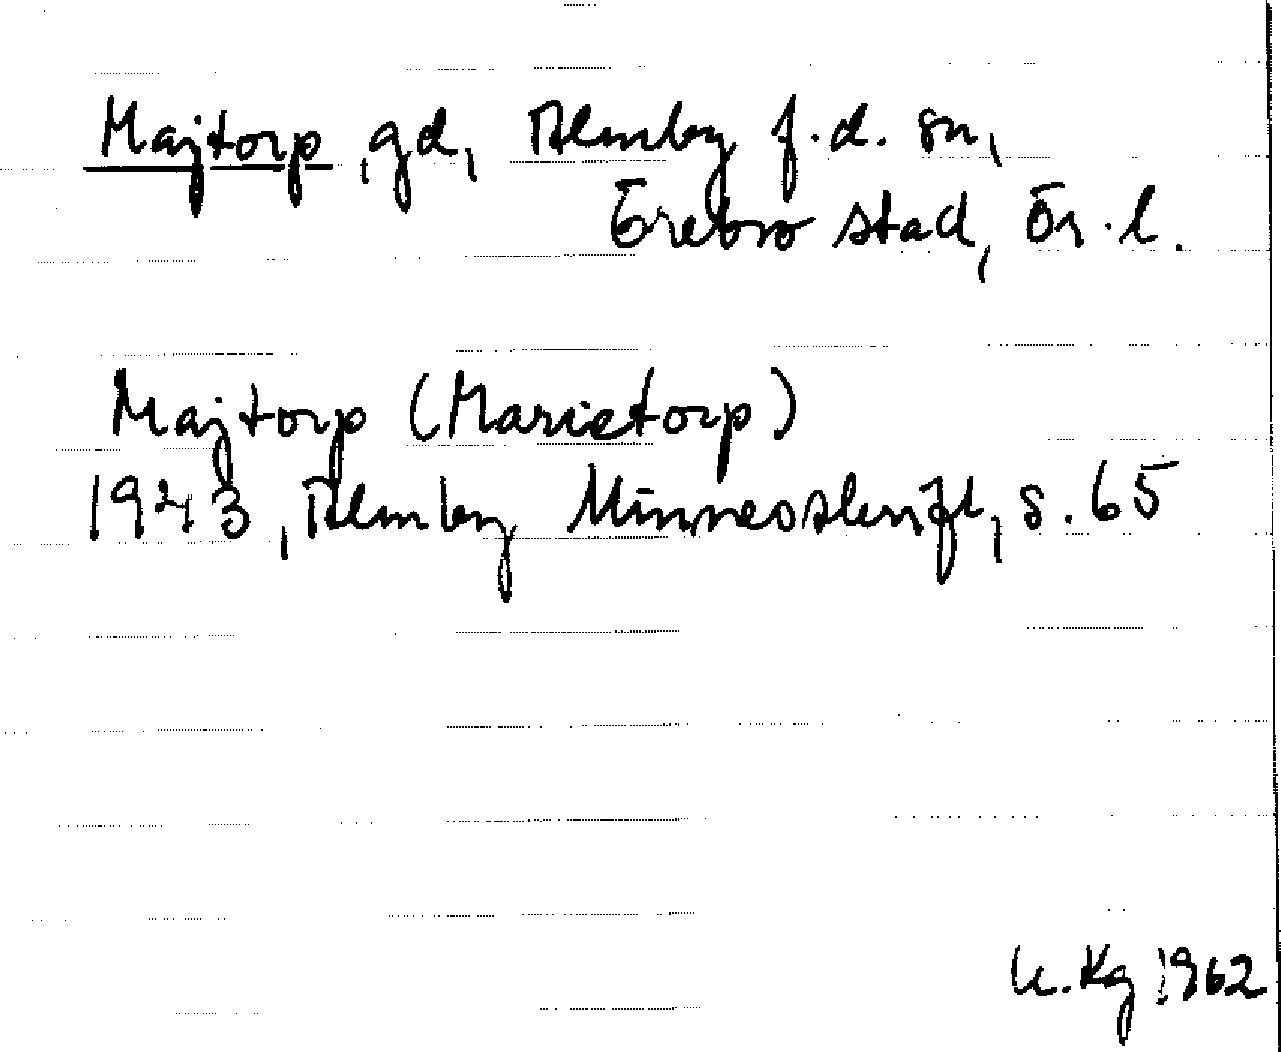 Majtorp, gd, Almby f.d. sn,
Örebro stad, Ör.l.
Majtorp (Marietorp)
1943, Almby Minnesskrift, s. 65
U.Kg 1962